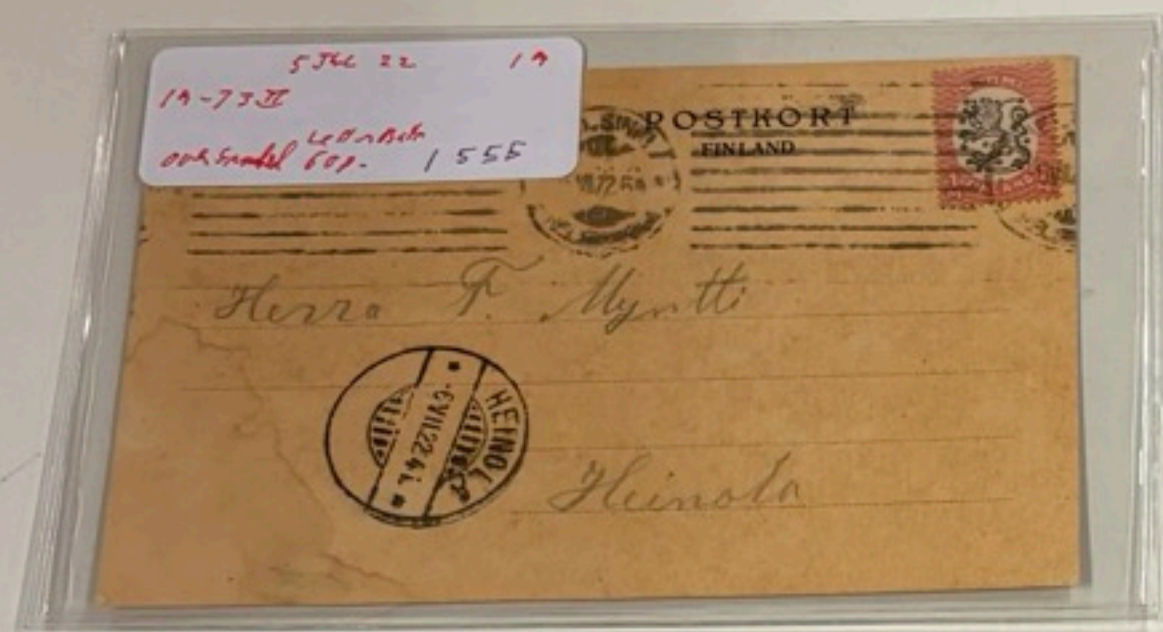 5 JUL 22 19
19-73 II
60p. 1555
POSTKORT
FINLAND
Herra F. Myntti
HEINOLA
-6.VII.22.4
Heinola